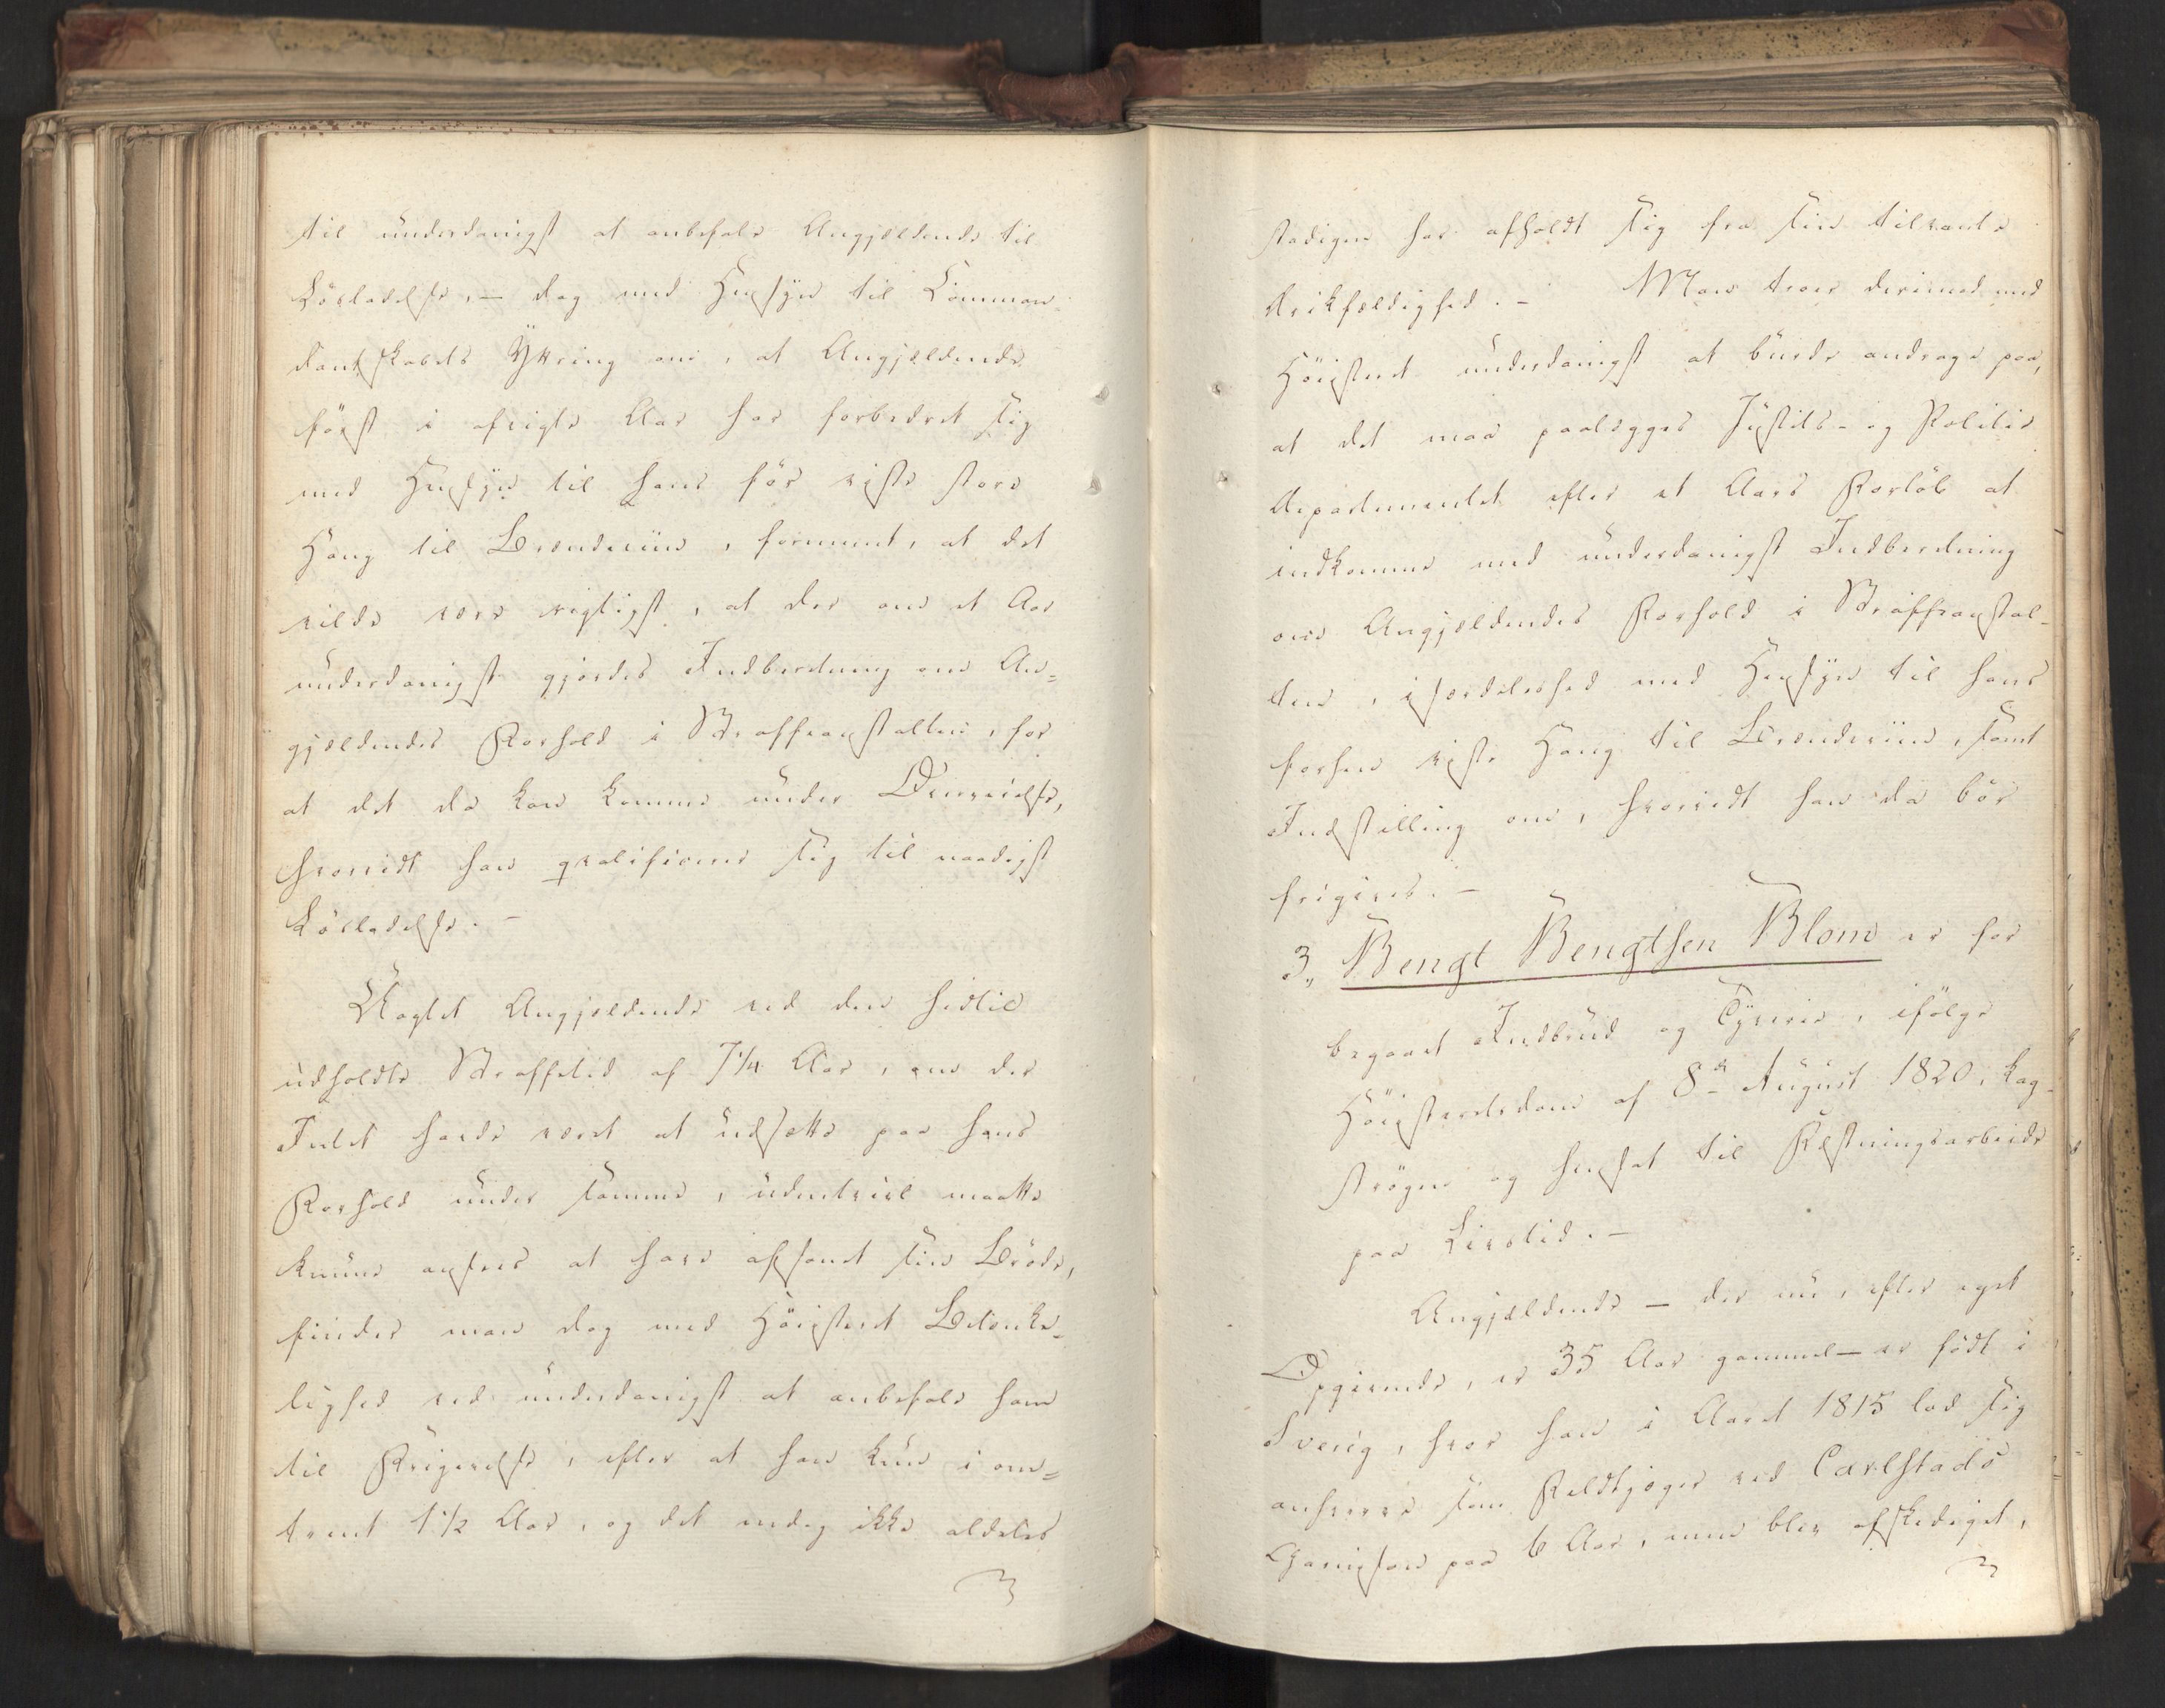 til underdanigst at anbefale Angjældende til
Løsladelse, – dog med Hensyn til Comman-
dantskabets Yttring om, at Angjældende
først i afvigte Aar har forbedret sig
med Hensyn til hans før viste store
Hang til Brændeviin, formeent, at det
vilde være rigtigst, at der om et Aar
underdanigst gjordes Indberetning om An=
gjældendes Forhold i Straffeanstalten, for
at det da kan komme under Overveielse,
hvorvidt han qvalificerer sig til naadigst
Løsladelse. –
Uagtet Angjældende ved den hidtil
udholdte Straffetid af 7¼ Aar, om der
Intet havde været at udsætte paa hans
Forhold under samme, udentvivl maatte
kunne ansees at have afsonet sin Brøde,
finder man dog med Høisteret Betænke-
lighed ved underdanigst at anbefale ham
til Frigivelse, efter at han kun i om=
trent 1½ Aar, og det endog ikke aldeles
stadigen har afholdt sig fra sin tilvante
Drikfældighed. – Man troer derimod med
Høisteret underdanigst at burde andrage paa,
at det maa paalægges Justits- og Politie
Departementet efter et Aars Forløb at
indkomme med underdanigst Indberetning
om Angjældendes Forhold i Straffeanstal-
ten, i særdeleshed med Hensyn til hans
forhen viste Hang til Brændeviin, samt
Indstilling om, hvorvidt han da bør
frigives. –
3, Bengt Bengtsen Blom er for
begaaet Indbrud og Tyverie, ifølge
Høisteretsdom af 8de August 1820, kag-
strøgen og hensat til Fæstningsarbeide
paa Livstid. –
Angjældende – der nu, efter eget
Opgivende, er 35 Aar gammel – er født i
Sverig, hvor han i Aaret 1815 lod sig
anhverve som Feldtjæger ved Carlstads
Garnison paa 6 Aar, men blev afskediget,